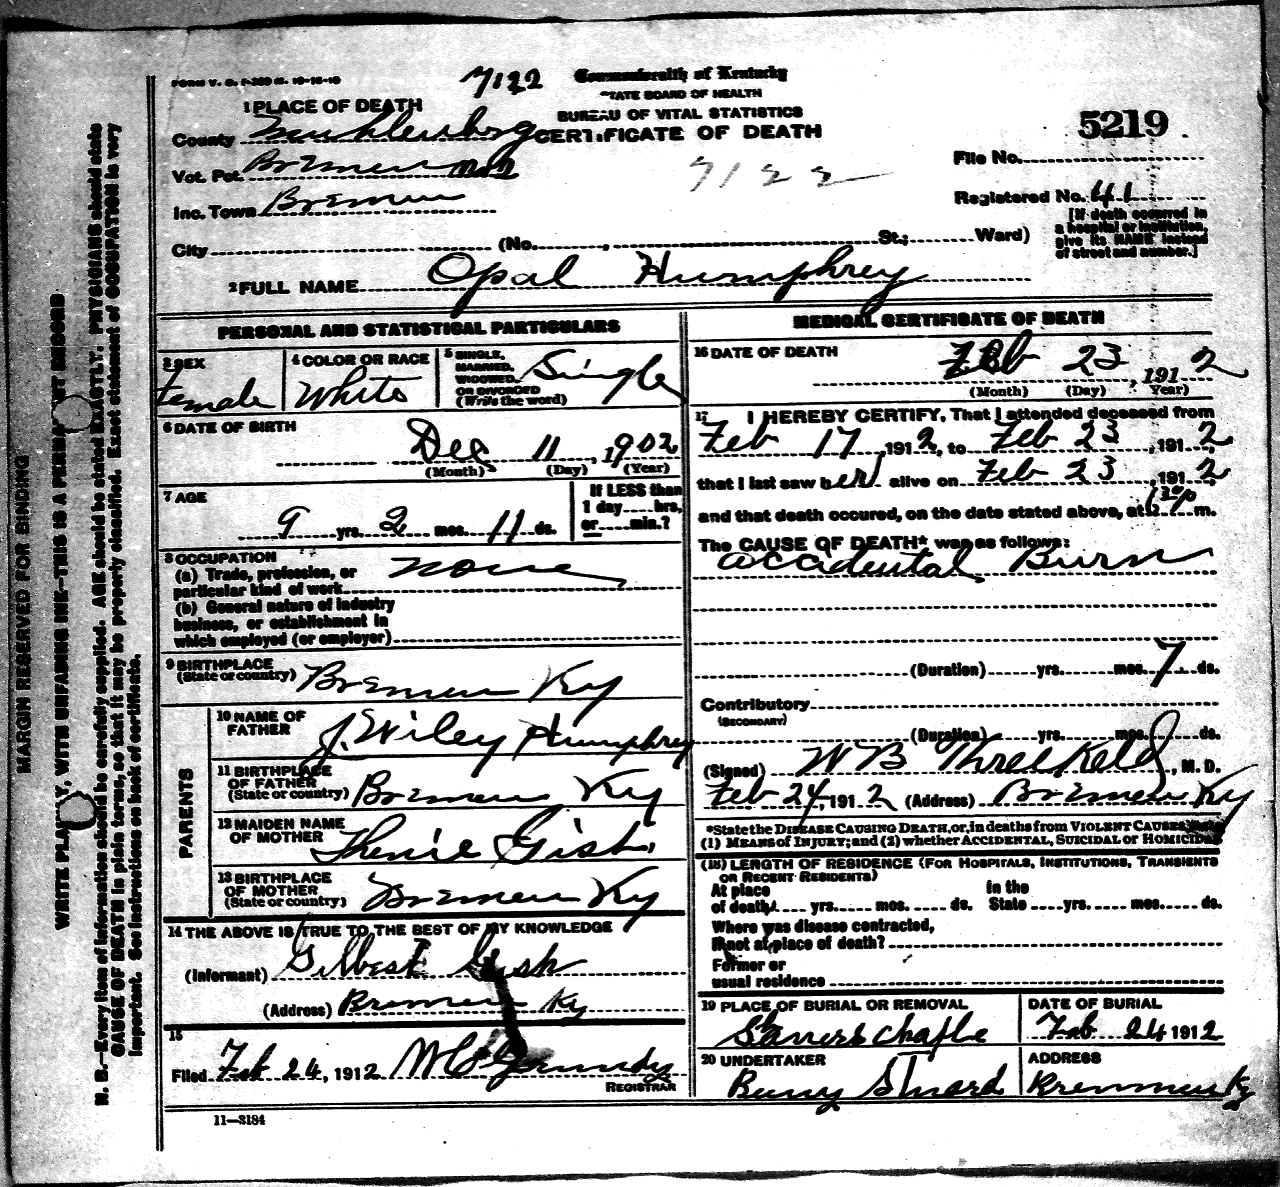 FORM V. S. 10-15-10
7122
Commonwealth of Kentucky
STATE BOARD OF HEALTH
BUREAU OF VITAL STATISTICS
CERTIFICATE OF DEATH
5219
1 PLACE OF DEATH
County Muhlenberg
Vot. Pct. Bremen
Inc. Town Bremen
City (No. , St.; Ward)
7122
File No.
Registered No. 41
[If death occurred in
a hospital or institution,
give its NAME instead
of street and number.]
2 FULL NAME Opal Humphrey
PERSONAL AND STATISTICAL PARTICULARS
3 SEX
Female
4 COLOR OR RACE
White
5 SINGLE,
MARRIED,
WIDOWED,
OR DIVORCED
(Write the word)
Single
6 DATE OF BIRTH
Dec 11, 1902
(Month) (Day) (Year)
7 AGE
9 yrs. 2 mos. 11 ds.
If LESS than
1 day hrs,
or min.?
8 OCCUPATION
(a) Trade, profession, or
particular kind of work none
(b) General nature of industry
business, or establishment in
which employed (or employer)
9 BIRTHPLACE
(State or country) Bremen Ky
PARENTS
10 NAME OF
FATHER J. Wiley Humphrey
11 BIRTHPLACE
OF FATHER
(State or country) Bremen Ky
12 MAIDEN NAME
OF MOTHER Thenie Gish
13 BIRTHPLACE
OF MOTHER
(State or country) Bremen Ky
14 THE ABOVE IS TRUE TO THE BEST OF MY KNOWLEDGE
(Informant) Gilbert Gish
(Address) Bremen Ky
15
Filed Feb 24, 1912
REGISTRAR
11—3184
MEDICAL CERTIFICATE OF DEATH
16 DATE OF DEATH
Feb 23, 1912
(Month) (Day) Year)
17 I HEREBY CERTIFY, That I attended deceased from
Feb 17, 1912, to Feb 23, 1912,
that I last saw her alive on Feb 23, 1912,
and that death occured, on the date stated above, at m.
The CAUSE OF DEATH* was as follows:
accidental Burn
(Duration) yrs. mos. 7 ds.
Contributory
(SECONDARY)
(Duration) yrs. mos. ds.
(Signed) W B Threlkeld, M. D.
Feb 24, 1912 (Address) Bremen Ky
*State the DISEASE CAUSING DEATH, or, in deaths from VIOLENT CAUSES, state
(1) MEANS of INJURY; and (2) whether ACCIDENTAL, SUICIDAL or HOMICIDAL
(18) LENGTH OF RESIDENCE (FOR HOSPITALS, INSTITUTIONS, TRANSIENTS
OR RECENT RESIDENTS)
At place In the
of death yrs. mos. ds. State yrs. mos. ds.
Where was disease contracted,
If not at place of death?
Former or
usual residence
19 PLACE OF BURIAL OR REMOVAL
DATE OF BURIAL
Feb 24 1912
20 UNDERTAKER
ADDRESS
Bremen Ky
MARGIN RESERVED FOR BINDING
WRITE PLAINLY, WITH UNFADING INK—THIS IS A PERMANENT RECORD
N. B.—Every item of information should be carefully supplied. AGE should be stated EXACTLY. PHYSICIANS should state
CAUSE OF DEATH in plain terms, so that it may be properly classified. Exact statement of OCCUPATION is very
important. See instructions on back of certificate.